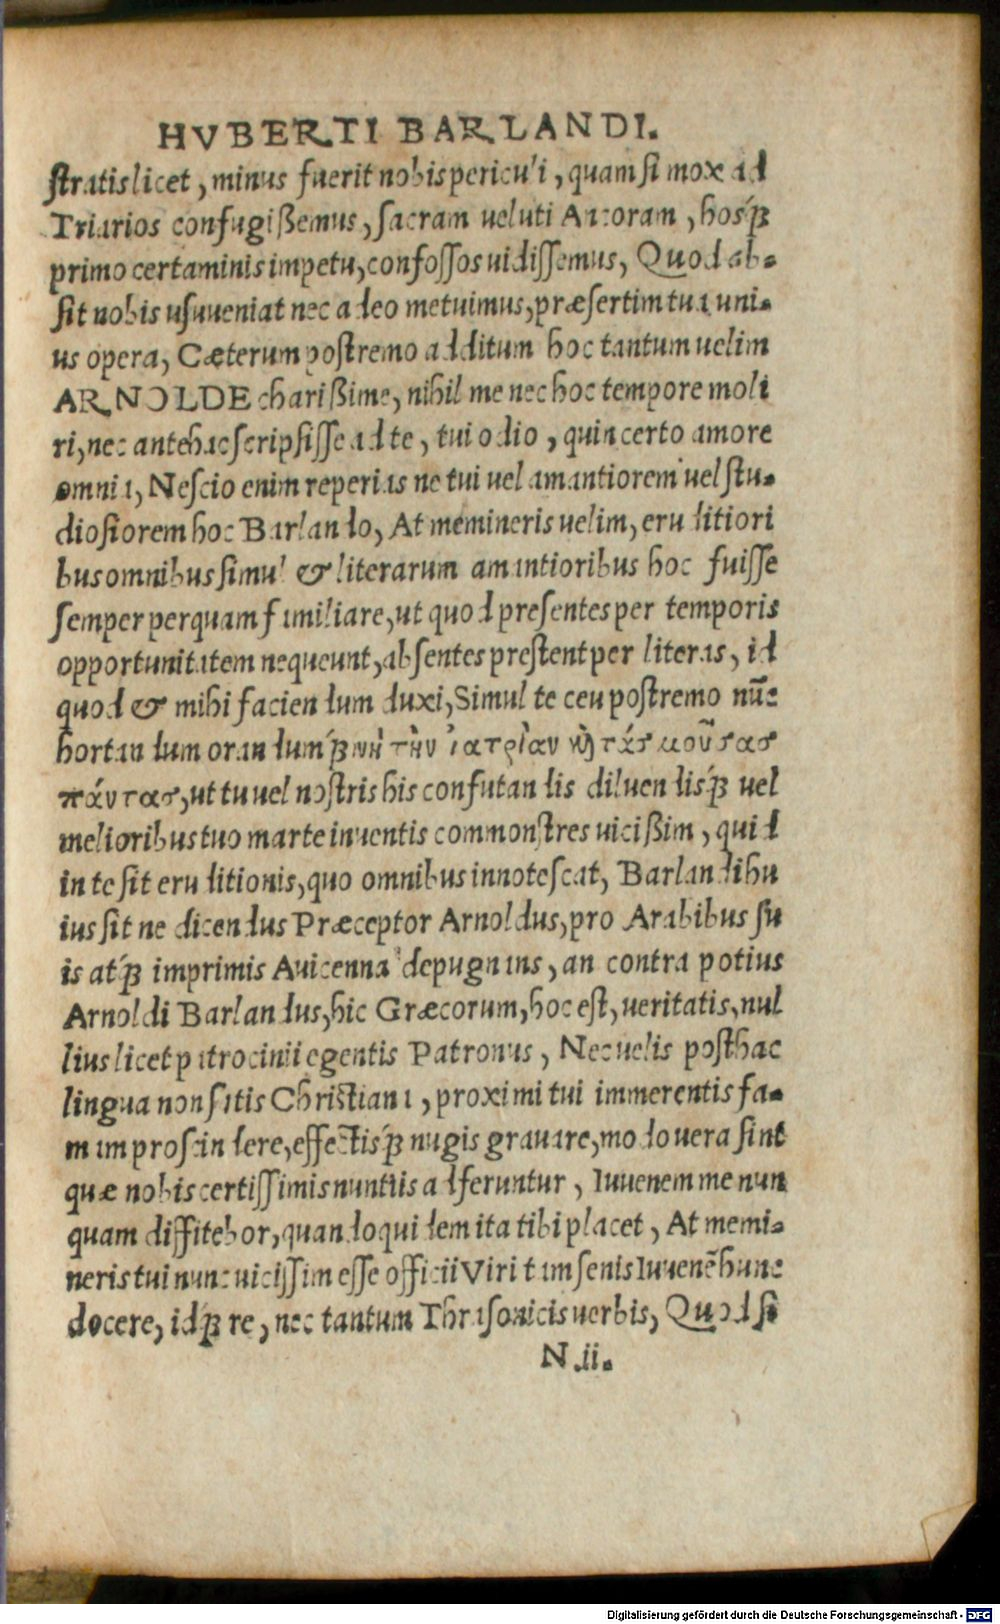 HVBERTI BARLANDI.
stratis licet, minus fuerit nobis periculi, quam si mox ad
Triarios confugißemus, sacram ueluti Ancoram, hosq́;
primo certaminis impetu, confossos uidissemus, Quod ab-
sit nobis usuueniat nec adeo metuimus, præsertim tua uni-
us opera, Cæterum postremo additum hoc tantum uelim
ARNOLDE charißime, nihil me nec hoc tempore moli
ri, nec antehac scripsisse ad te, tui odio, quin certo amore
omnia, Nescio enim reperias ne tui uel amantiorem uel stu-
diosiorem hoc Barlando, At memineris uelim, eruditiori
bus omnibus simul & literarum amantioribus hoc fuisse
semper perquam familiare, ut quod presentes per temporis
opportunitatem nequeunt, absentes prestent per literas, id
quod & mihi faciendum duxi, Simul te ceu postremo nūc
hortandum orandumq́; νὴ τὴν ἰατρὶαν κὴ τάς μοῦσας
πάντας, ut tu uel nostris his confutandis diluendisq́; uel
melioribus tuo marte inuentis commonstres uicißim, quid
in te sit eruditionis, quo omnibus innotescat, Barlandi hu
ius sit ne dicendus Præceptor Arnoldus, pro Arabibus su
is atq́; imprimis Auicenna depugnans, an contra potius
Arnoldi Barlandus, hic Græcorum, hoc est, ueritatis, nul
lius licet patrocinii egentis Patronus, Nec uelis posthac
lingua non satis Christiana, proximi tui immerentis fa-
mam proscindere, effectisq́; nugis grauare, modo uera sint
quæ nobis certissimis nuntiis adferuntur, Iuuenem me nun
quam diffitebor, quando quidem ita tibi placet, At memi-
neris tui nunc uicissim esse officii Viri tam senis Iuuenē hunc
docere, idq́; re, nec tantum Thrasonicis uerbis, Quod si
N ii.
Digitalisierung gefördert durch die Deutsche Forschungsgemeinschaft - DFG